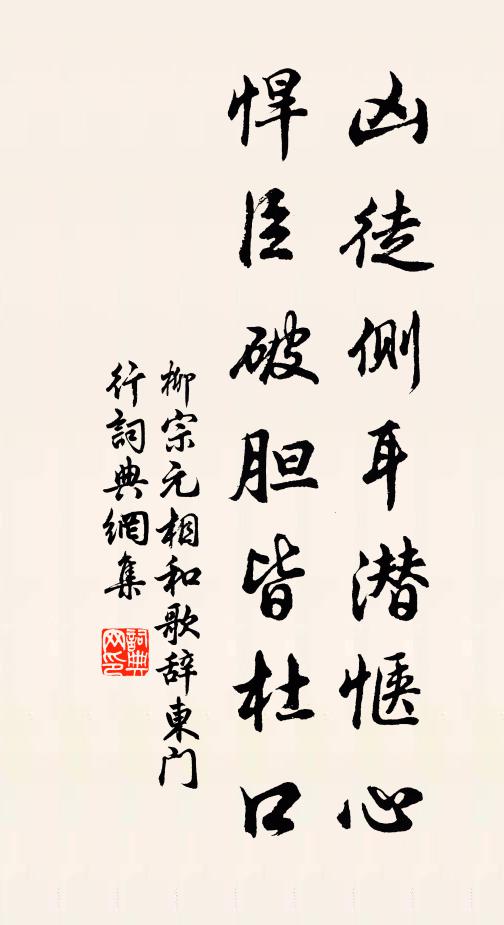 凶徒側耳潜惬心
悍臣破胆皆杜口
柳宗元相和歌辞東门
行詞典網集
詞典网印